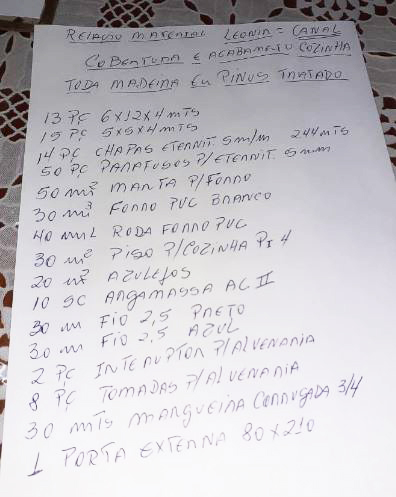 RELAÇÃO MATERIAL LEONIR = CANAL
COBERTURA E ACABAMETO COZINHA
TODA MADEIRA EM PINUS TRATADO
13 PÇ 6X12X4 MTS
15 PÇ 5X5X4 MTS
14 PÇ CHAPAS ETERNIT. 5m/m 244 MTS
50 PÇ PARAFUSOS P/ETERNIT. 5mm
50 m² MANTA P/FORRO
30 m³ FORRO PVC BRANCO
40 ml RODA FORRO PVC
30 m² PISO P/COZINHA PI 4
20 m² AZULEJOS
10 SC ARGAMASSA AC II
30 m FIO 2,5 PRETO
30 m FIO 2,5 AZUL
2 PÇ INTERUPTOR P/ALVENARIA
8 PÇ TOMADAS P/ALVENARIA
30 MTS MANGUEIRA CORRUGADA 3/4
1 PORTA EXTERNA 80X210